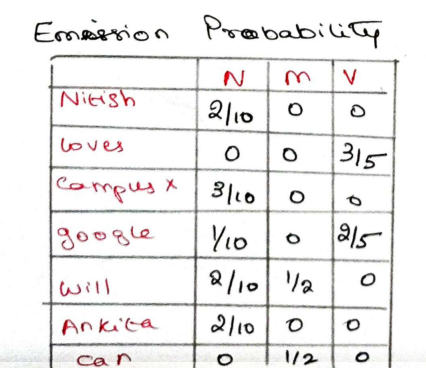 Emission Probability
N M V
Nitish 2/10 0 0
loves 0 0 3/5
Campus x 3/10 0 0
google 1/10 0 2/5
will 2/10 1/2 0
Ankita 2/10 0 0
can 0 1/2 0